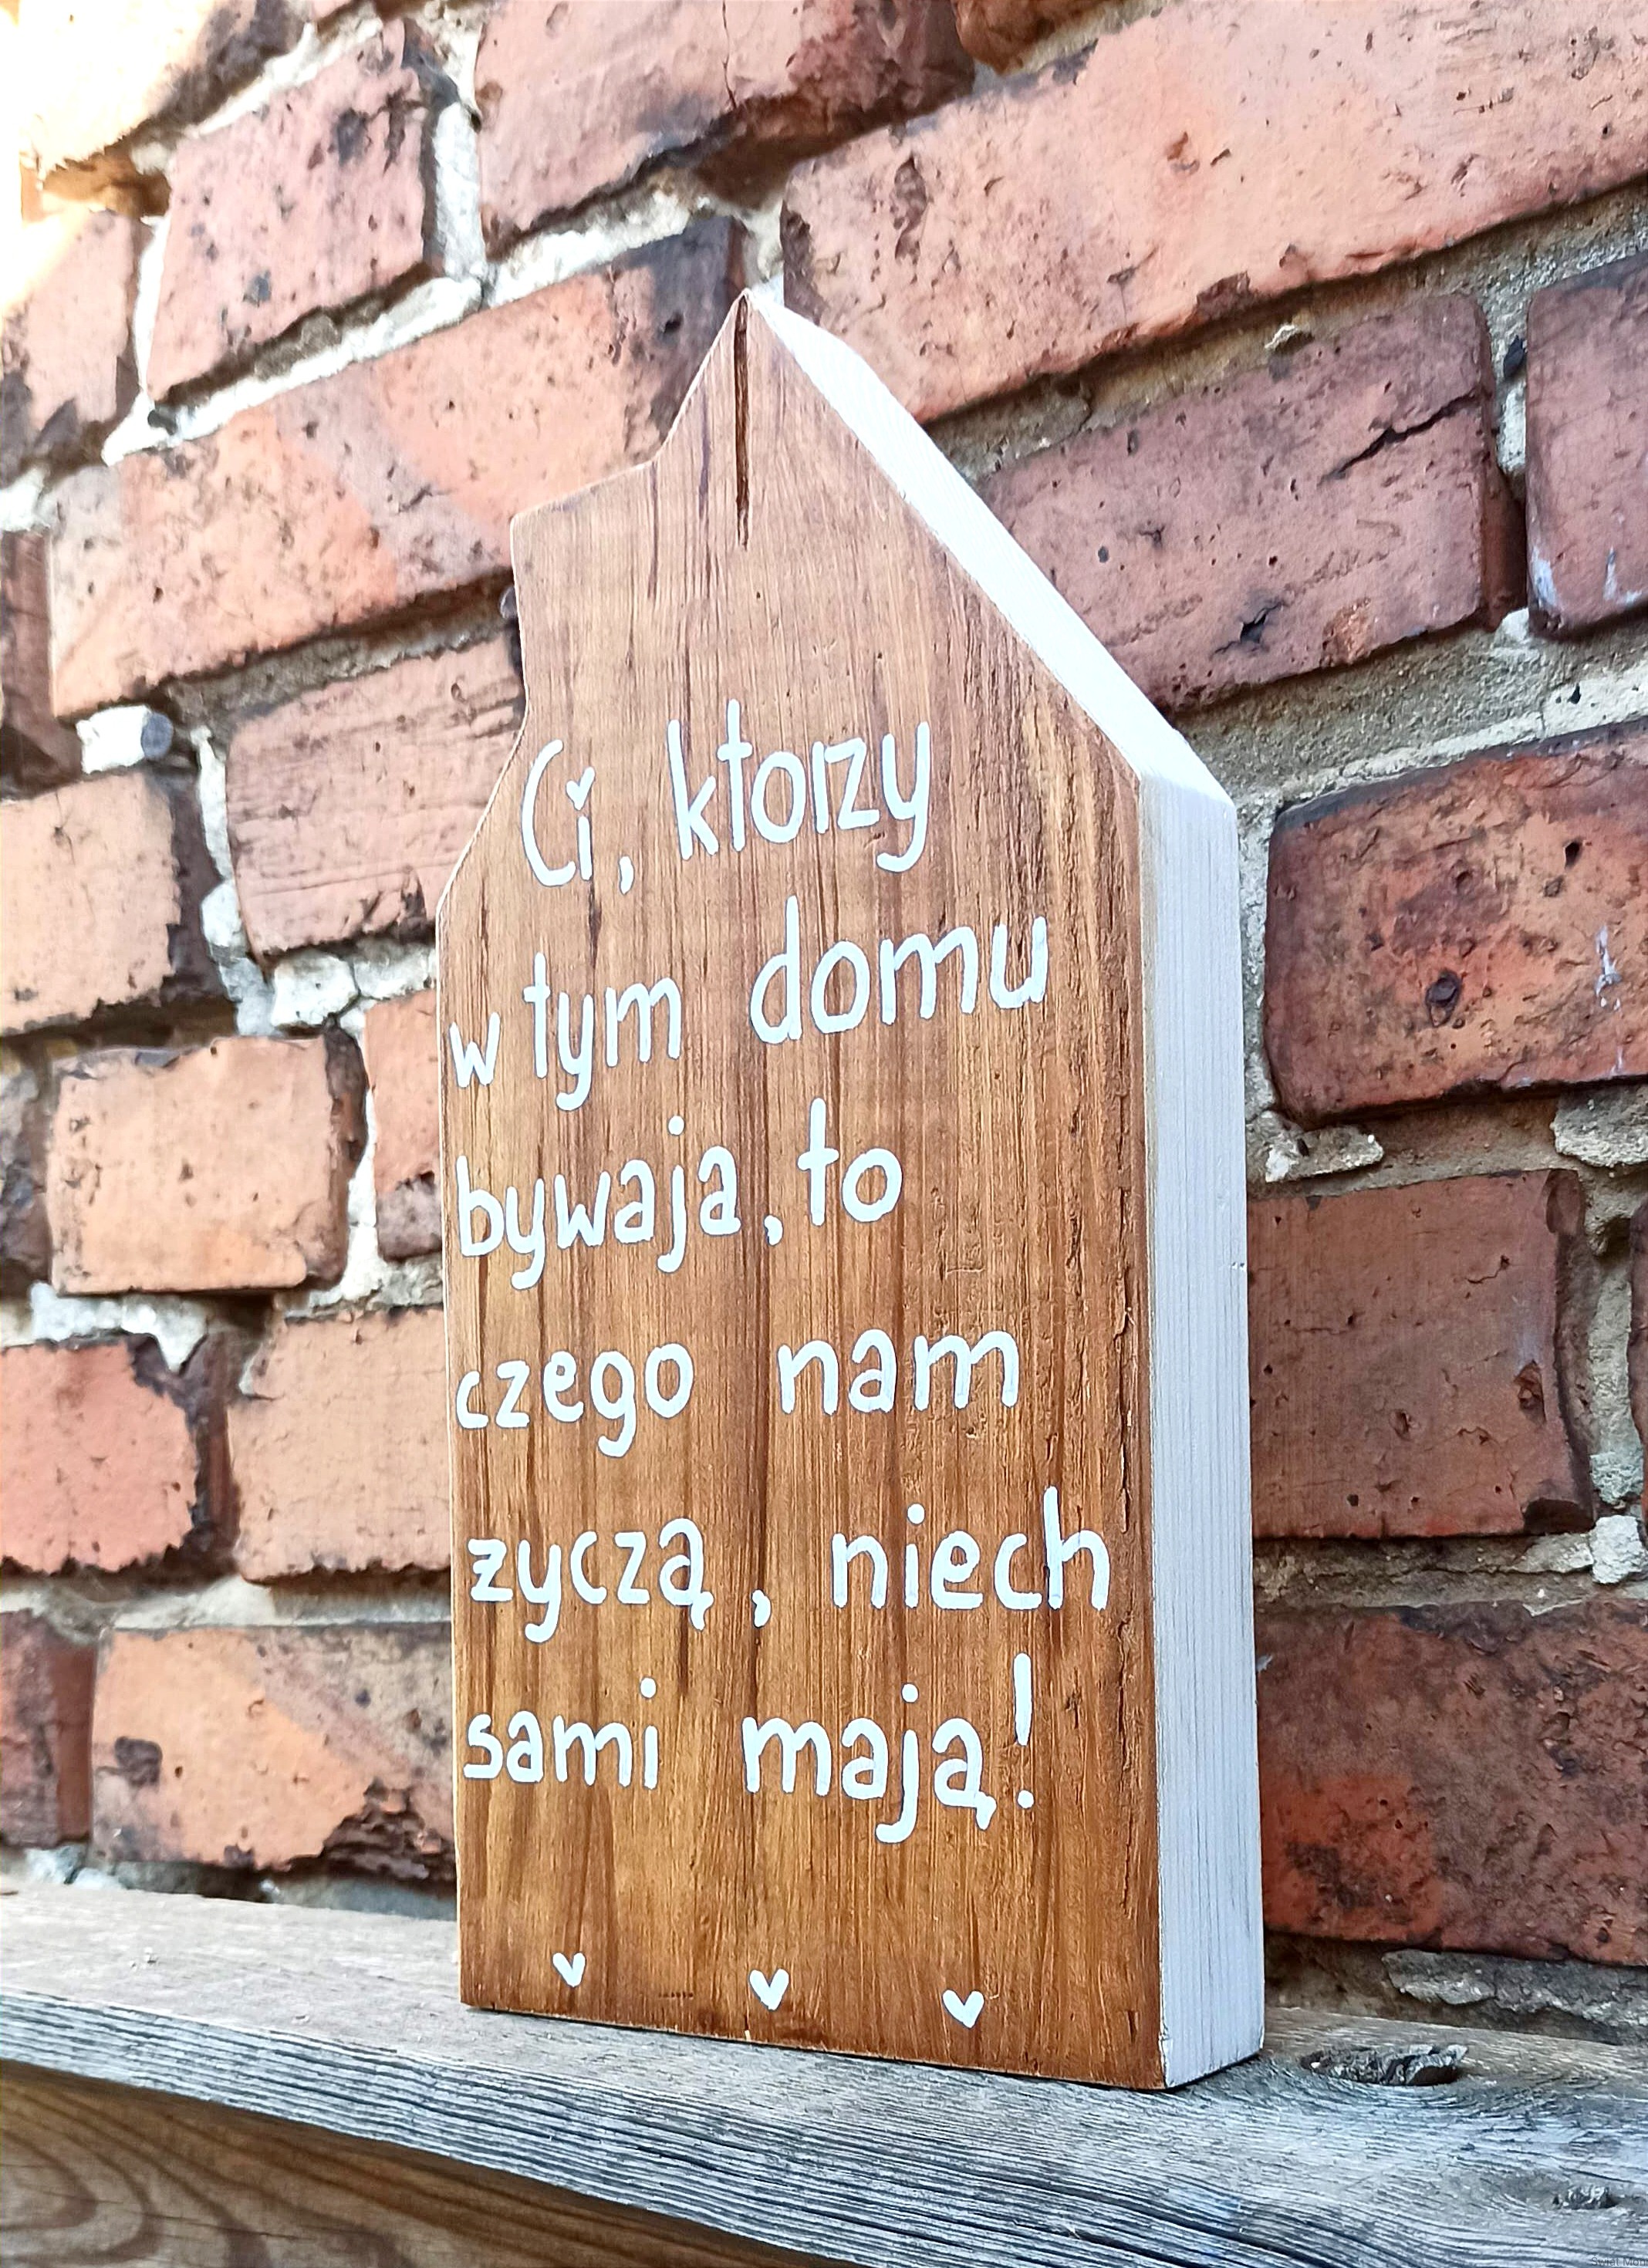 Ci, ktorzy
w tym domu
bywaja, to
czego nam
zyczą, niech
sami mają!